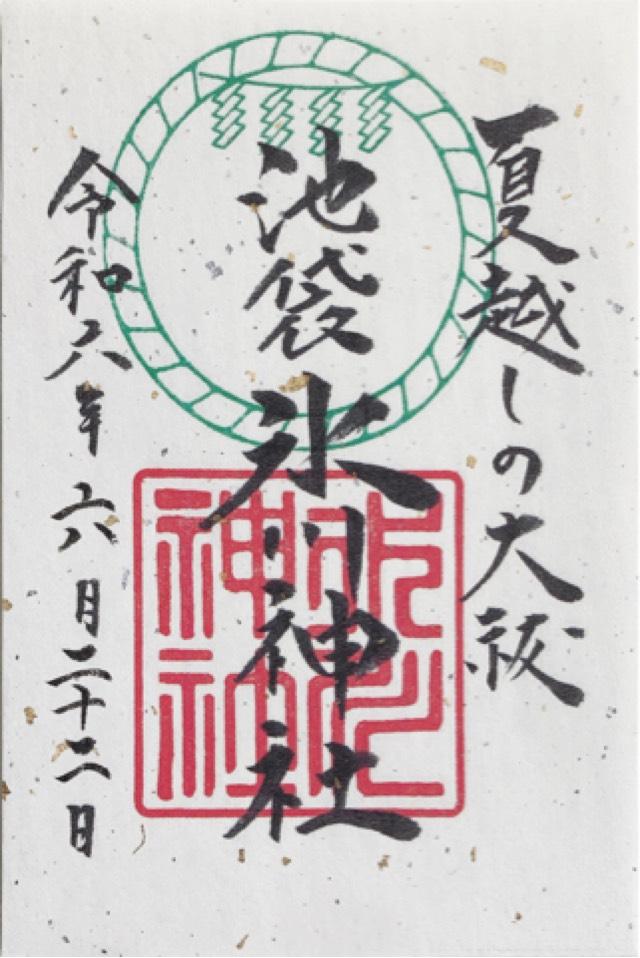 夏越しの大祓
池袋氷川神社
氷川神社
令和六年六月二十二日